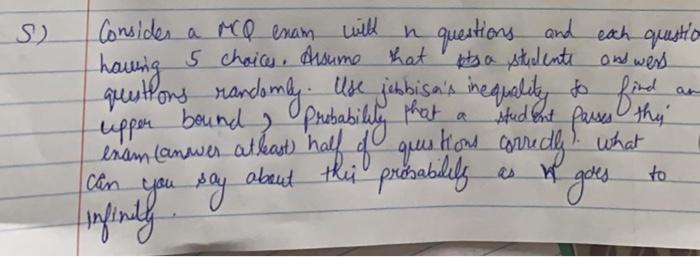 5) Consider a MCQ exam will n questions and each questio
having 5 choices. Assume that a students answers
questions randomly. Use jebbisa's inequality to find an
upper bound, Probability that a student passes this
exam (answer atleast) half of questions correctly). What
can you say about this probability as n goes to
infinity.